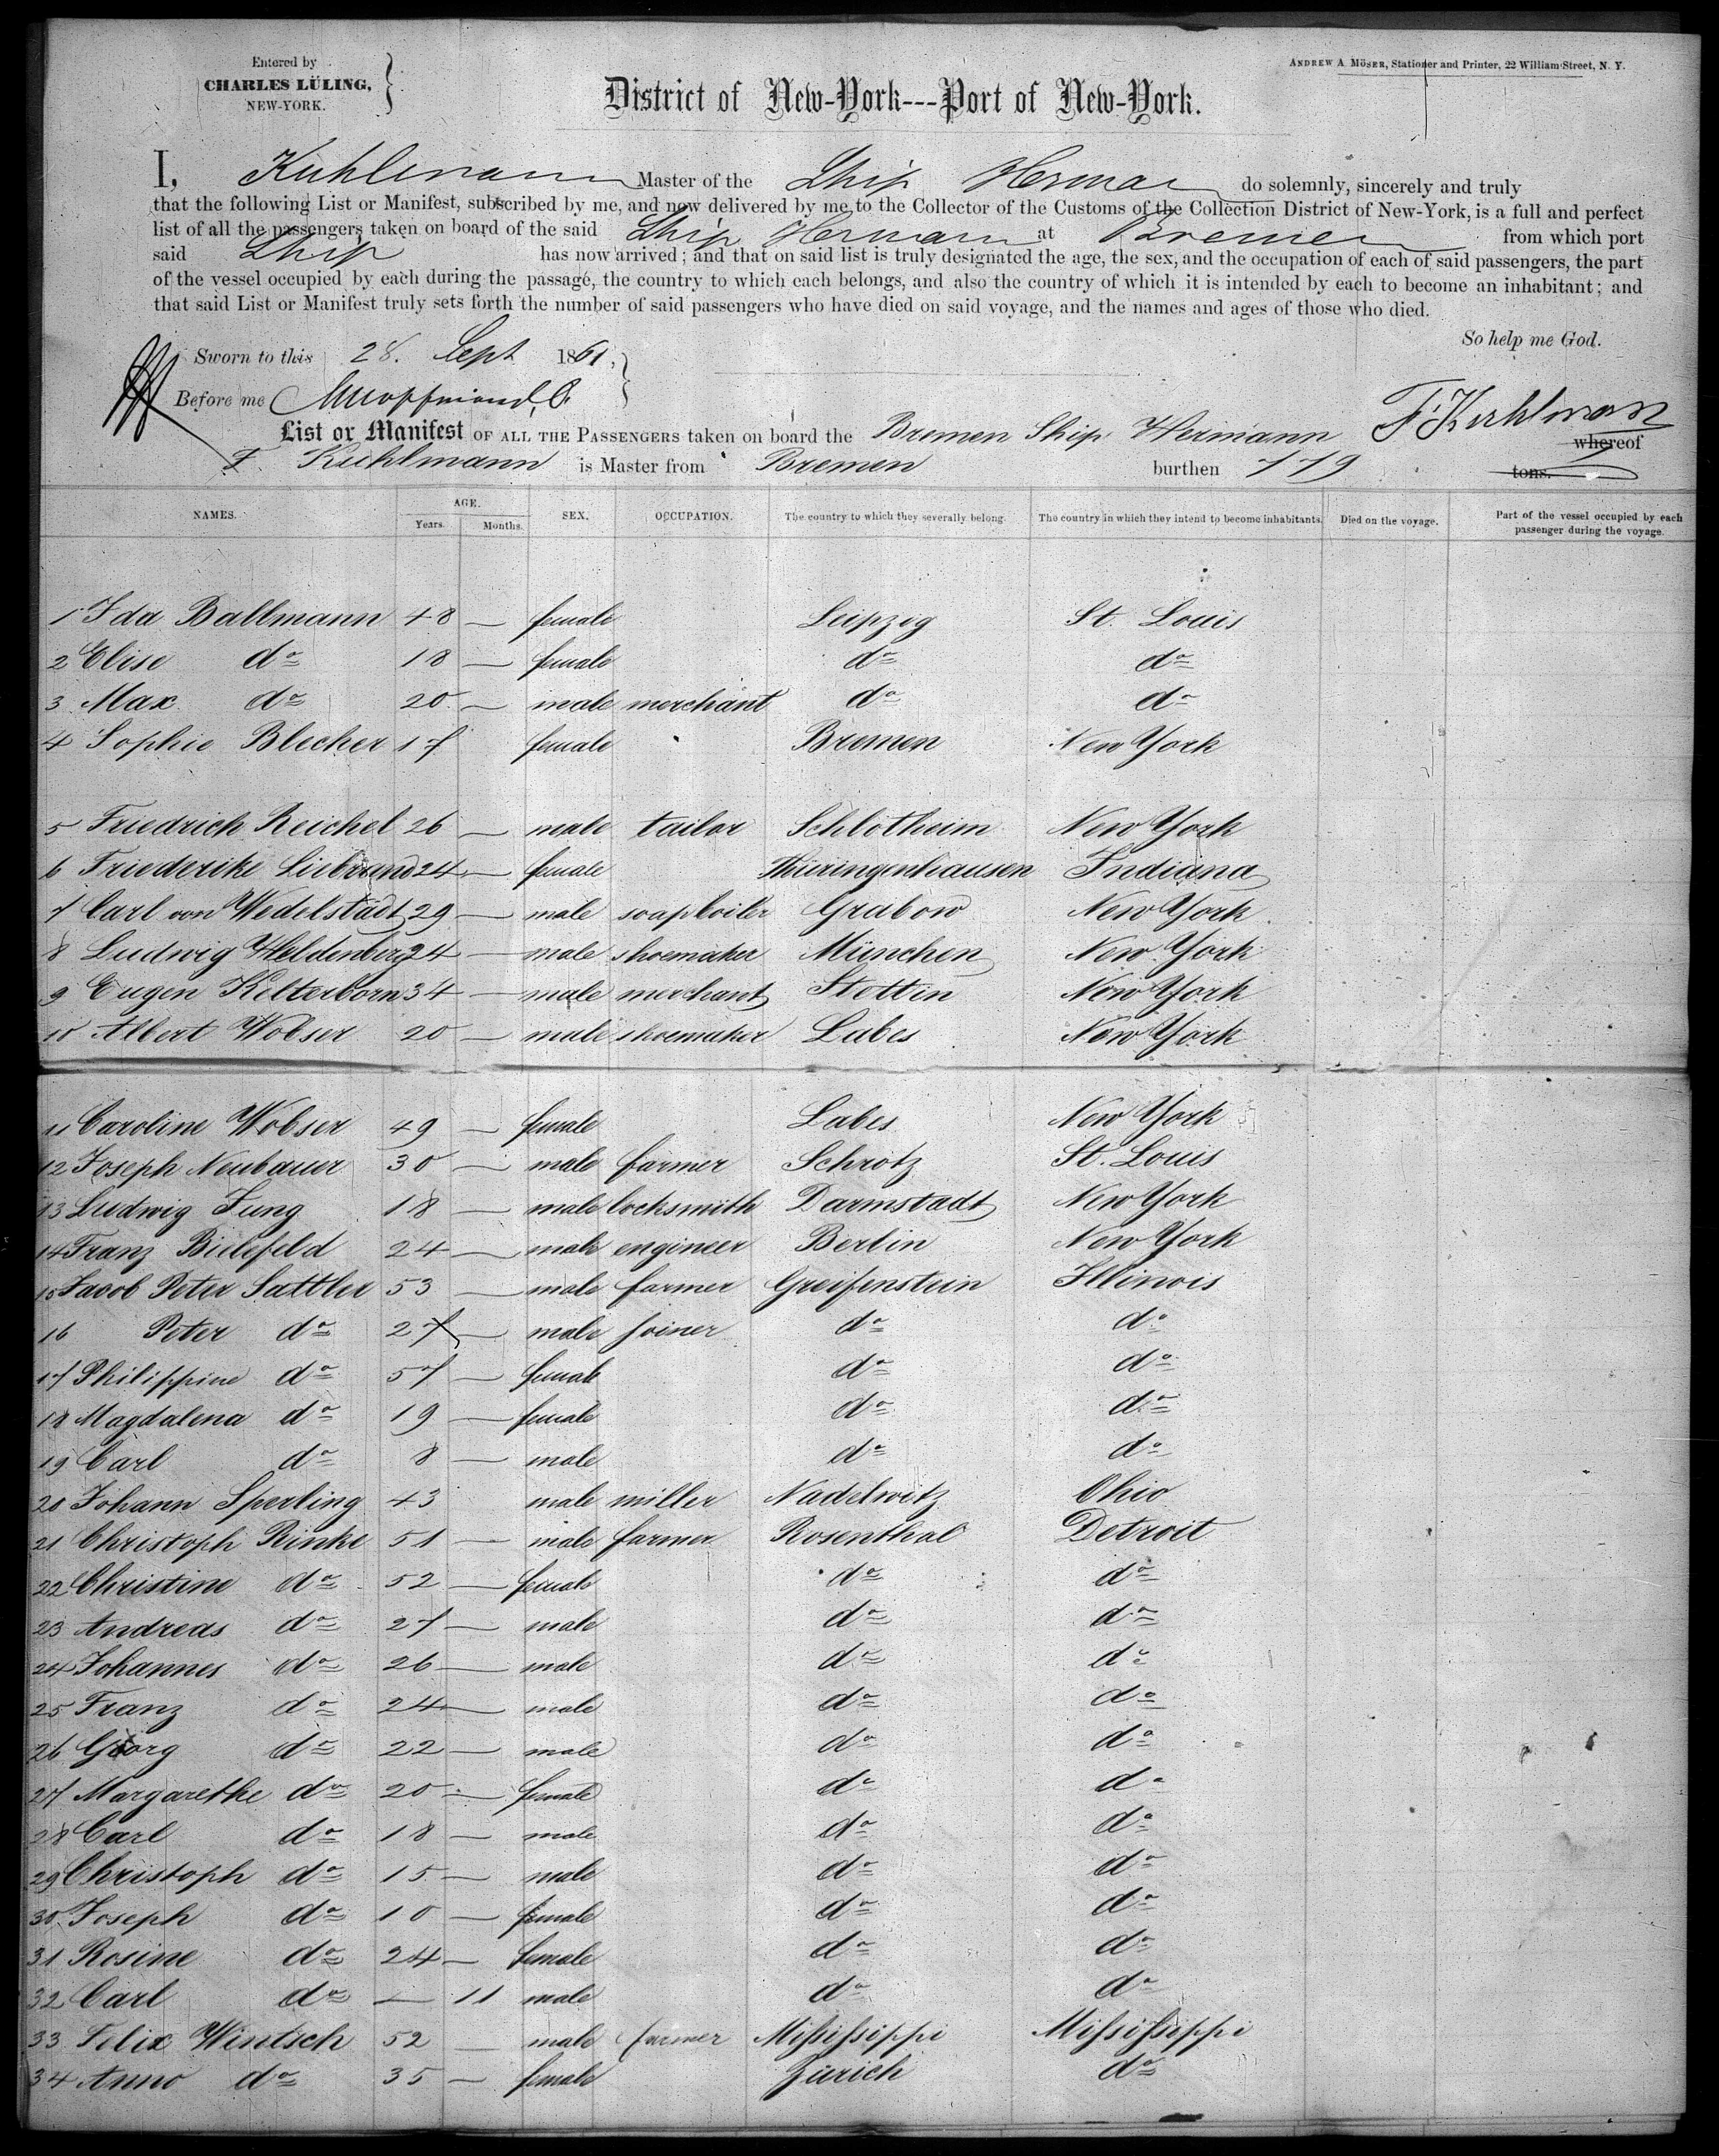 Entered by
CHARLES LÜLING,
NEW-YORK.
ANDREW A. MÖSER, Stationer and Printer, 22 William-Street, N. Y.
District of New-York---Port of New-York.
I, Kuhlmann Master of the Ship Herman do solemnly, sincerely and truly
that the following List or Manifest, subscribed by me, and now delivered by me to the Collector of the Customs of the Collection District of New-York, is a full and perfect
list of all the passengers taken on board of the said Ship Hermann at Bremen from which port
said Ship has now arrived; and that on said list is truly designated the age, the sex, and the occupation of each of said passengers, the part
of the vessel occupied by each during the passage, the country to which each belongs, and also the country of which it is intended by each to become an inhabitant; and
that said List or Manifest truly sets forth the number of said passengers who have died on said voyage, and the names and ages of those who died.
So help me God.
Sworn to this 28. Sept 1861.
Before me
F. Kuhlmann
List or Manifest OF ALL THE PASSENGERS taken on board the Bremen Ship Hermann whereof
F. Kuhlmann is Master from Bremen burthen 779 tons.
NAMES. AGE. Years. Months. SEX. OCCUPATION. The country to which they severally belong. The country in which they intend to become inhabitants. Died on the voyage. Part of the vessel occupied by each passenger during the voyage.
1 Ida Ballmann 48 — female Leipzig St. Louis
2 Elise do 18 — female do do
3 Max do 20 — male merchant do do
4 Sophie Blecher 17 female Bremen New York
5 Friedrich Reichel 26 — male tailor Schlotheim New York
6 Friederike Liebrand 24 — female Thüringenhausen Indiana
7 Carl von Wedelstädt 29 — male soapboiler Grabow New York
8 Ludwig Heldenberg 24 — male shoemaker München New York
9 Eugen Kelterborn 34 — male merchant Stettin New York
10 Albert Wobser 20 — male shoemaker Labes New York
11 Caroline Wobser 49 — female Labes New York
12 Joseph Neubauer 30 — male farmer Schrotz St. Louis
13 Ludwig Jung 18 — male locksmith Darmstadt New York
14 Franz Bielefeld 24 — male engineer Berlin New York
15 Jacob Peter Sattler 53 — male farmer Greifenstein Illinois
16 Peter do 27 — male joiner do do
17 Philippine do 57 — female do do
18 Magdalena do 19 — female do do
19 Carl do 8 — male do do
20 Johann Sperling 43 male miller Nadelwitz Ohio
21 Christoph Rinke 51 — male farmer Rosenthal Detroit
22 Christine do 52 — female do do
23 Andreas do 27 — male do do
24 Johannes do 26 — male do do
25 Franz do 24 — male do do
26 Georg do 22 — male do do
27 Margarethe do 20 — female do do
28 Carl do 18 — male do do
29 Christoph do 15 — male do do
30 Joseph do 10 — female do do
31 Rosine do 24 — female do do
32 Carl do — 11 male do do
33 Felix Wintsch 52 — male farmer Mississippi Mississippi
34 Anno do 35 — female Zürich do